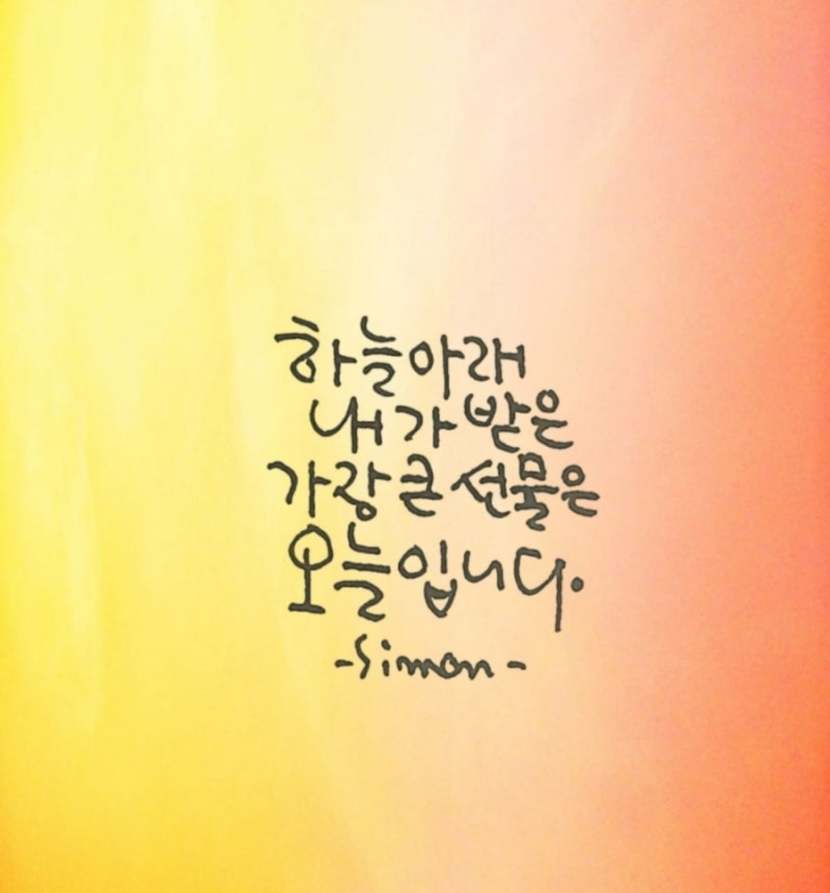 하늘아래
내가 받은
가장 큰 선물은
오늘입니다.
-Simon-